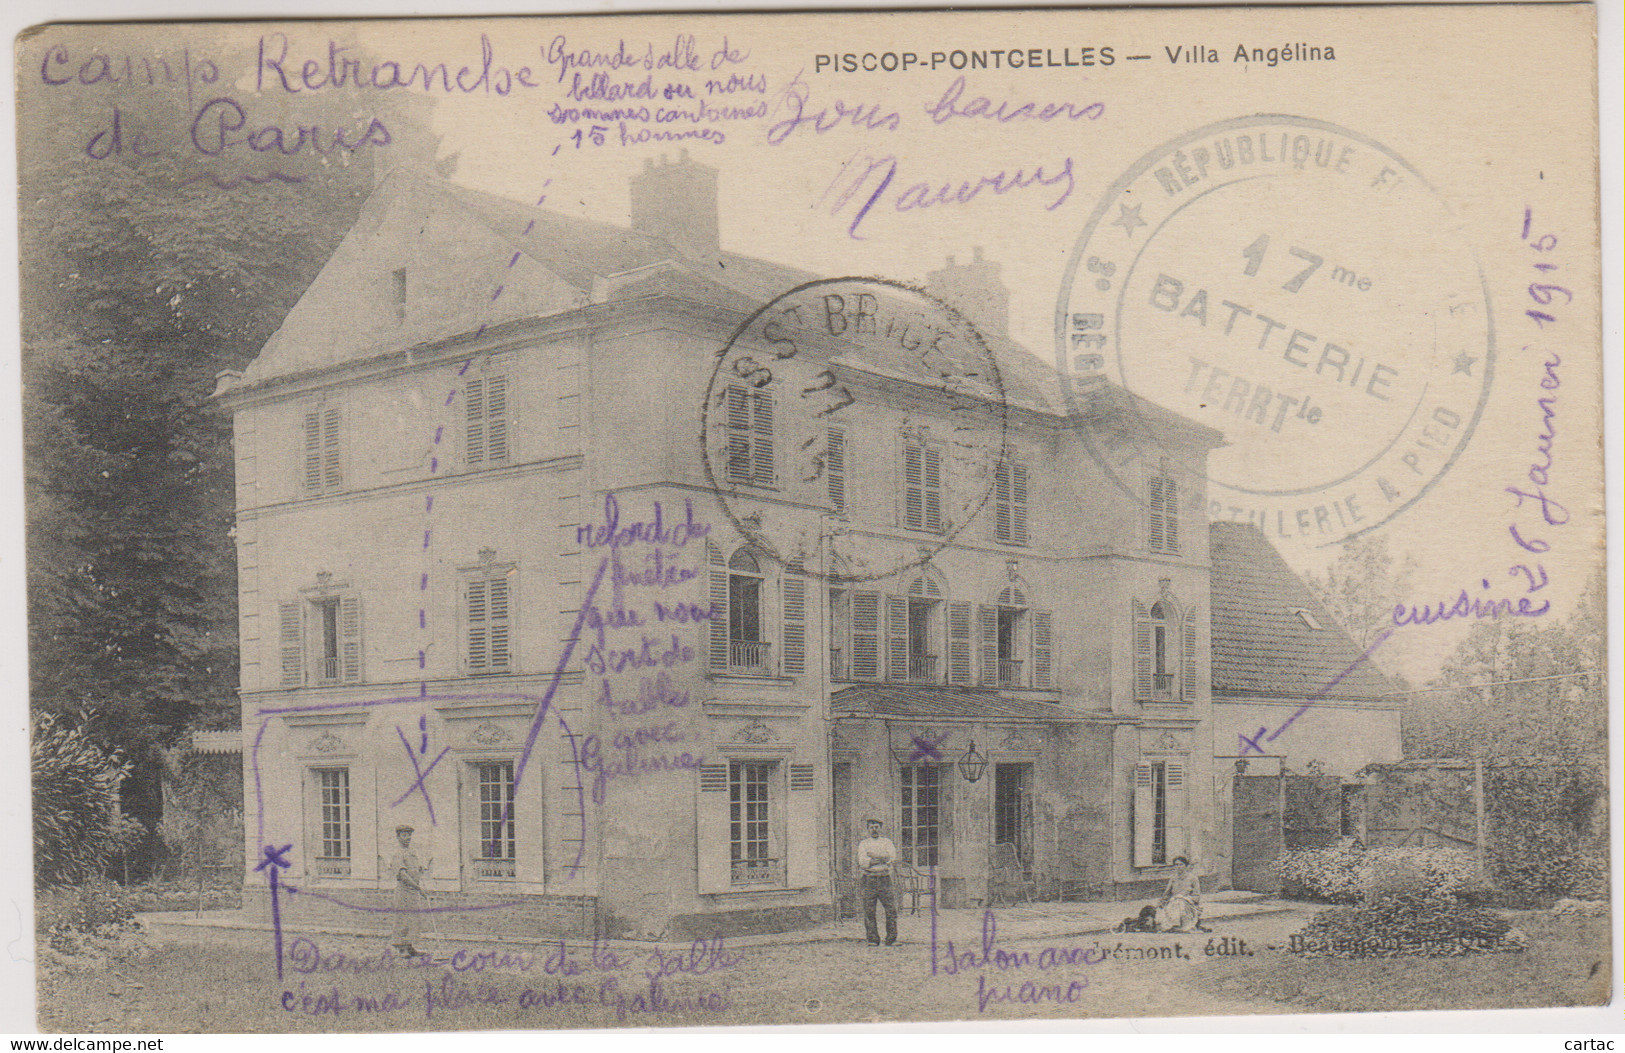 PISCOP-PONTCELLES — Villa Angélina
Camp Retranché
de Paris
Grande salle de
billard ou nous
sommes cantonés
15 hommes
Bons baisers
RÉPUBLIQUE
3e
17me
BATTERIE
TERRTle
ARTILLERIE A PIED
26 Janvier 1915
ST BRICE
27
15
rebord de
fenêtre
que nous
sert de
table
avec
Galinié
cuisine
Dans ce coin de la salle
c'est ma place avec Galinié
salon avec
piano
Frémont, édit. - Beaumont-sur-Oise
delcampe.net
cartac